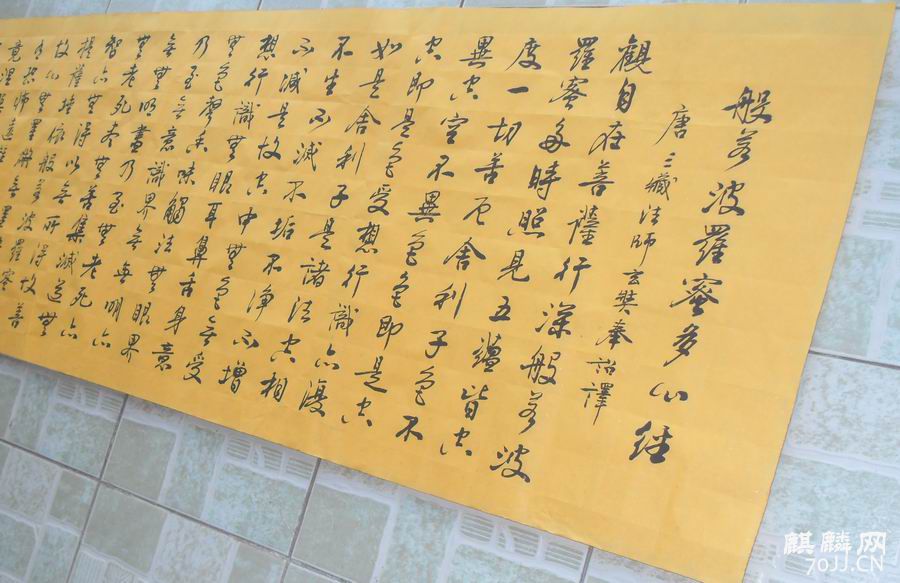 般若波羅蜜多心經
唐三藏法師玄奘奉詔譯
觀自在菩薩行深般若波
羅蜜多時照見五蘊皆空
度一切苦厄舍利子色不
異空空不異色色即是空
空即是色受想行識亦復
如是舍利子是諸法空相
不生不滅不垢不淨不增
不減是故空中無色無受
想行識無眼耳鼻舌身意
無色聲香味觸法無眼界
乃至無意識界無無明亦
無無明盡乃至無老死亦
無老死盡無苦集滅道無
智亦無得以無所得故菩
提薩埵依般若波羅蜜
故心無罣
竟涅
麒麟网
70JJ.CN